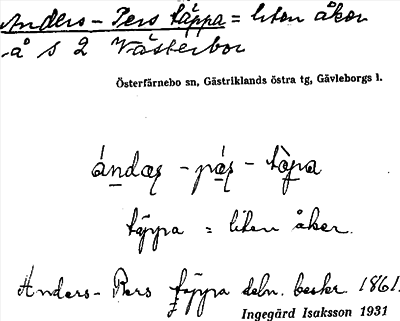 Anders-Pers täppa = liten åker
å s 2 Västerbor
Österfärnebo sn, Gästriklands östra tg, Gävleborgs l.
ándæs - pæ̣s - tòpa
täppa = liten åker.
Anders-Pers täppa deln. beskr. 1861.
Ingegärd Isaksson 1931